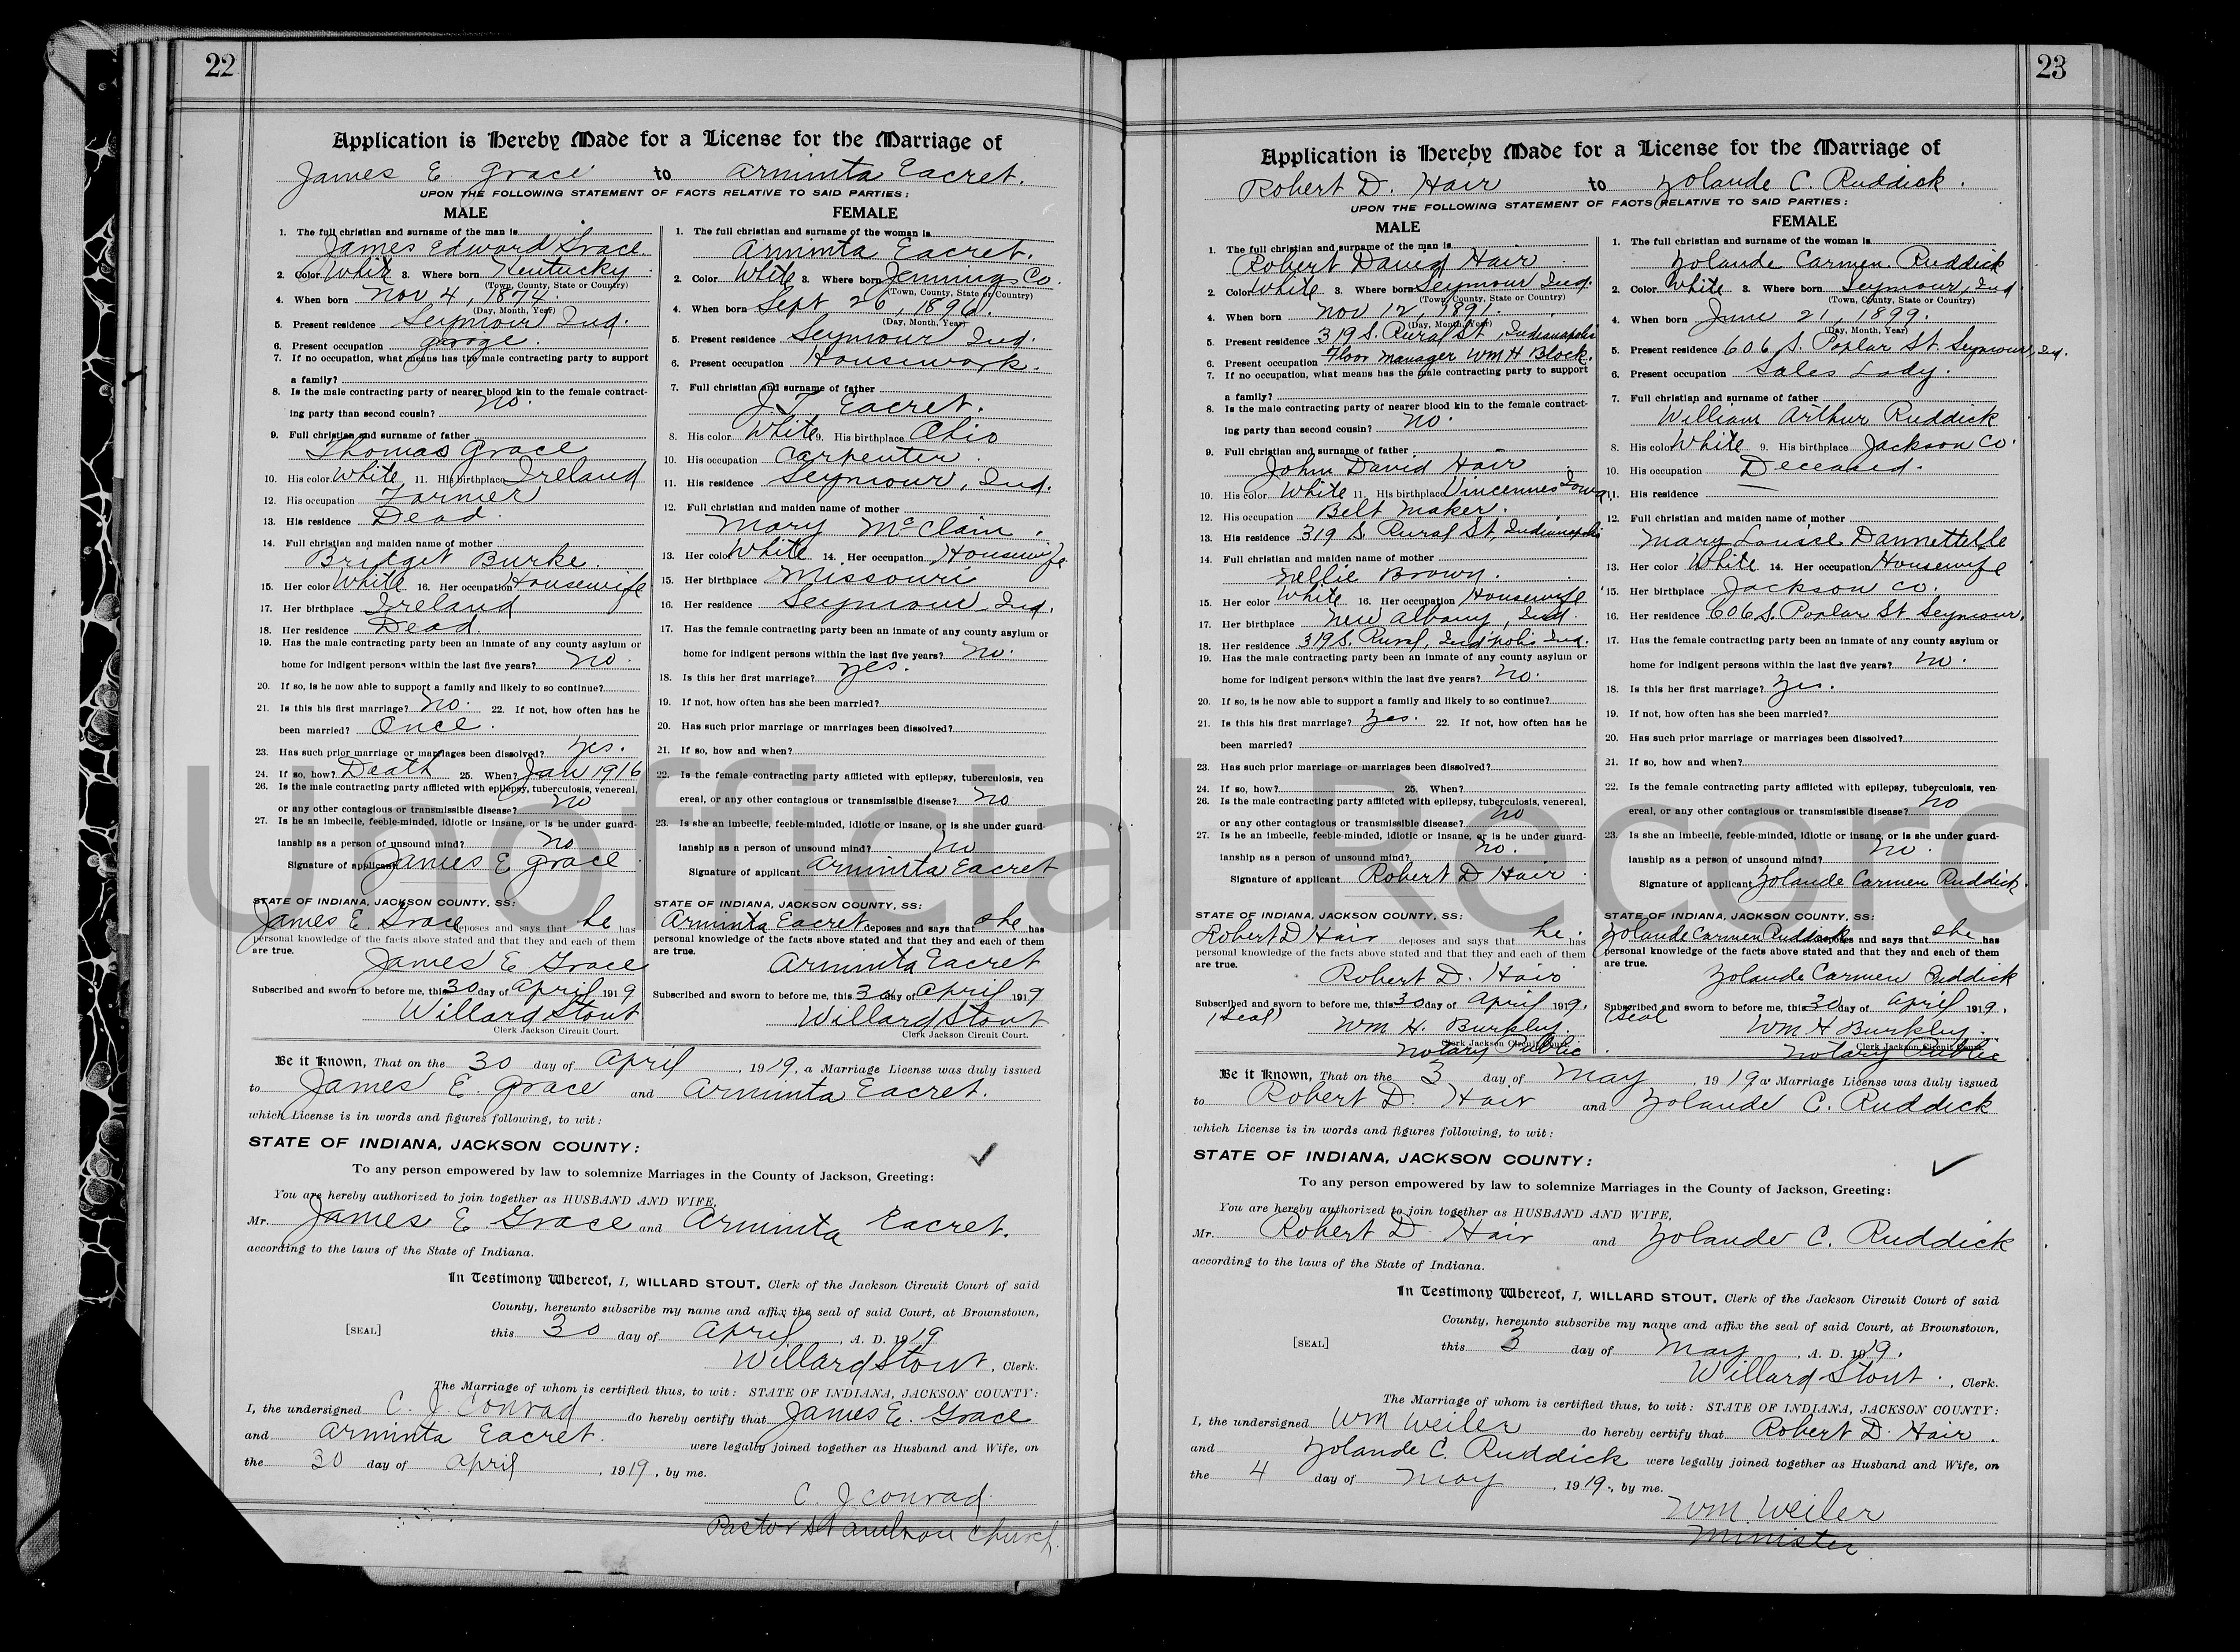 22
Application is Hereby Made for a License for the Marriage of
James E Grace to Arminta Eacret.
UPON THE FOLLOWING STATEMENT OF FACTS RELATIVE TO SAID PARTIES:
MALE
1. The full christian and surname of the man is
James Edward Grace
2. Color White 3. Where born Kentucky
(Town, County, State or Country)
4. When born Nov 4, 1874.
(Day, Month, Year)
5. Present residence Seymour Ind.
6. Present occupation garage.
7. If no occupation, what means has the male contracting party to support
a family?
8. Is the male contracting party of nearer blood kin to the female contract-
ing party than second cousin? no.
9. Full christian and surname of father
Thomas Grace
10. His color White 11. His birthplace Ireland
12. His occupation Farmer
13. His residence Dead.
14. Full christian and maiden name of mother
Bridget Burke.
15. Her color White 16. Her occupation Housewife
17. Her birthplace Ireland
18. Her residence Dead.
19. Has the male contracting party been an inmate of any county asylum or
home for indigent persons within the last five years? no.
20. If so, is he now able to support a family and likely to so continue?
21. Is this his first marriage? no. 22. If not, how often has he
been married? Once.
23. Has such prior marriage or marriages been dissolved? yes.
24. If so, how? Death 25. When? Jan 1916
26. Is the male contracting party afflicted with epilepsy, tuberculosis, venereal,
or any other contagious or transmissible disease? no
27. Is he an imbecile, feeble-minded, idiotic or insane, or is he under guard-
ianship as a person of unsound mind? no
Signature of applicant James E Grace
STATE OF INDIANA, JACKSON COUNTY, SS:
James E. Grace deposes and says that he has
personal knowledge of the facts above stated and that they and each of them
are true.
James E Grace
Subscribed and sworn to before me, this 30 day of April 1919
Willard Stout
Clerk Jackson Circuit Court.
FEMALE
1. The full christian and surname of the woman is
Arminta Eacret.
2. Color White 3. Where born Jennings Co.
(Town, County, State or Country)
4. When born Sept 26, 1896.
(Day, Month, Year)
5. Present residence Seymour Ind.
6. Present occupation Housework.
7. Full christian and surname of father
J. T. Eacret.
8. His color White 9. His birthplace Ohio
10. His occupation Carpenter.
11. His residence Seymour, Ind.
12. Full christian and maiden name of mother
Mary McClain.
13. Her color White 14. Her occupation Housewife
15. Her birthplace Missouri
16. Her residence Seymour Ind.
17. Has the female contracting party been an inmate of any county asylum or
home for indigent persons within the last five years? no.
18. Is this her first marriage? yes.
19. If not, how often has she been married?
20. Has such prior marriage or marriages been dissolved?
21. If so, how and when?
22. Is the female contracting party afflicted with epilepsy, tuberculosis, ven
ereal, or any other contagious or transmissible disease? no
23. Is she an imbecile, feeble-minded, idiotic or insane, or is she under guard-
ianship as a person of unsound mind? no
Signature of applicant Arminta Eacret
STATE OF INDIANA, JACKSON COUNTY, SS:
Arminta Eacret deposes and says that she has
personal knowledge of the facts above stated and that they and each of them
are true.
Arminta Eacret
Subscribed and sworn to before me, this 30 day of April 1919
Willard Stout
Clerk Jackson Circuit Court.
Be it Known, That on the 30 day of April, 1919, a Marriage License was duly issued
to James E. Grace and Arminta Eacret.
which License is in words and figures following, to wit:
STATE OF INDIANA, JACKSON COUNTY:
To any person empowered by law to solemnize Marriages in the County of Jackson, Greeting:
You are hereby authorized to join together as HUSBAND AND WIFE,
Mr. James E Grace and Arminta Eacret.
according to the laws of the State of Indiana.
In Testimony Whereof, I, WILLARD STOUT, Clerk of the Jackson Circuit Court of said
County, hereunto subscribe my name and affix the seal of said Court, at Brownstown,
[SEAL] this 30 day of April, A. D. 1919
Willard Stout, Clerk.
The Marriage of whom is certified thus, to wit: STATE OF INDIANA, JACKSON COUNTY:
I, the undersigned C. J. Conrad do hereby certify that James E. Grace
and Arminta Eacret. were legally joined together as Husband and Wife, on
the 30 day of April, 1919, by me.
C. J. Conrad
Pastor St Ambrose Church.
23
Application is Hereby Made for a License for the Marriage of
Robert D. Hair to Yolande C. Ruddick.
UPON THE FOLLOWING STATEMENT OF FACTS RELATIVE TO SAID PARTIES:
MALE
1. The full christian and surname of the man is
Robert David Hair
2. Color White 3. Where born Seymour Ind.
(Town, County, State or Country)
4. When born Nov 12, 1891.
(Day, Month, Year)
5. Present residence 319 S. Rural St, Indianapolis
6. Present occupation Floor manager Wm H Block.
7. If no occupation, what means has the male contracting party to support
a family?
8. Is the male contracting party of nearer blood kin to the female contract-
ing party than second cousin? no.
9. Full christian and surname of father
John David Hair
10. His color White 11. His birthplace Vincennes Iowa
12. His occupation Belt maker.
13. His residence 319 S Rural St, Indianapolis
14. Full christian and maiden name of mother
Nellie Brown.
15. Her color White 16. Her occupation Housewife
17. Her birthplace New Albany, Ind.
18. Her residence 319 S. Rural, Ind'polis Ind.
19. Has the male contracting party been an inmate of any county asylum or
home for indigent persons within the last five years? no.
20. If so, is he now able to support a family and likely to so continue?
21. Is this his first marriage? yes. 22. If not, how often has he
been married?
23. Has such prior marriage or marriages been dissolved?
24. If so, how? 25. When?
26. Is the male contracting party afflicted with epilepsy, tuberculosis, venereal,
or any other contagious or transmissible disease? no
27. Is he an imbecile, feeble-minded, idiotic or insane, or is he under guard-
ianship as a person of unsound mind? no.
Signature of applicant Robert D Hair
STATE OF INDIANA, JACKSON COUNTY, SS:
Robert D Hair deposes and says that he has
personal knowledge of the facts above stated and that they and each of them
are true.
Robert D. Hair
Subscribed and sworn to before me, this 30 day of April 1919.
(Seal) Wm H. Burkley.
Clerk Jackson Circuit Court.
Notary Public
FEMALE
1. The full christian and surname of the woman is
Yolande Carmen Ruddick
2. Color White 3. Where born Seymour, Ind
(Town, County, State or Country)
4. When born June 21, 1899.
(Day, Month, Year)
5. Present residence 606 S. Poplar St. Seymour, Ind.
6. Present occupation Sales Lady.
7. Full christian and surname of father
William Arthur Ruddick
8. His color White 9. His birthplace Jackson Co.
10. His occupation Deceased.
11. His residence
12. Full christian and maiden name of mother
Mary Louise Dannettelle
13. Her color White 14. Her occupation Housewife
15. Her birthplace Jackson Co.
16. Her residence 606 S. Poplar St Seymour.
17. Has the female contracting party been an inmate of any county asylum or
home for indigent persons within the last five years? no.
18. Is this her first marriage? yes.
19. If not, how often has she been married?
20. Has such prior marriage or marriages been dissolved?
21. If so, how and when?
22. Is the female contracting party afflicted with epilepsy, tuberculosis, ven-
ereal, or any other contagious or transmissible disease? no
23. Is she an imbecile, feeble-minded, idiotic or insane, or is she under guard-
ianship as a person of unsound mind? no.
Signature of applicant Yolande Carmen Ruddick.
STATE OF INDIANA, JACKSON COUNTY, SS:
Yolande Carmen Ruddick deposes and says that she has
personal knowledge of the facts above stated and that they and each of them
are true.
Yolande Carmen Ruddick
Subscribed and sworn to before me, this 30 day of April 1919.
(Seal Wm H Burkley.
Clerk Jackson Circuit Court.
Notary Public
Be it Known, That on the 3 day of May, 1919 a Marriage License was duly issued
to Robert D. Hair and Yolande C. Ruddick
which License is in words and figures following, to wit:
STATE OF INDIANA, JACKSON COUNTY:
To any person empowered by law to solemnize Marriages in the County of Jackson, Greeting:
You are hereby authorized to join together as HUSBAND AND WIFE,
Mr. Robert D. Hair and Yolande C. Ruddick
according to the laws of the State of Indiana.
In Testimony Whereof, I, WILLARD STOUT, Clerk of the Jackson Circuit Court of said
County, hereunto subscribe my name and affix the seal of said Court, at Brownstown,
[SEAL] this 3 day of May, A. D. 1919.
Willard Stout., Clerk.
The Marriage of whom is certified thus, to wit: STATE OF INDIANA, JACKSON COUNTY:
I, the undersigned Wm Weiler do hereby certify that Robert D. Hair.
and Yolande C. Ruddick were legally joined together as Husband and Wife, on
the 4 day of May, 1919., by me.
Wm. Weiler
Minister
Unofficial Record